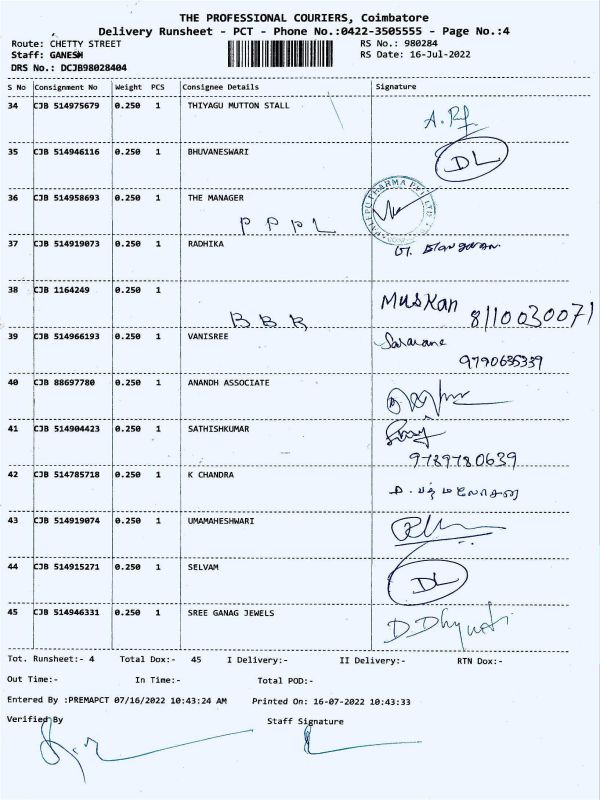 THE PROFESSIONAL COURIERS, Coimbatore
Delivery Runsheet - PCT - Phone No.:0422-3505555 - Page No.:4
Route: CHETTY STREET RS No.: 980284
Staff: GANESH RS Date: 16-Jul-2022
DRS No.: DCJB98028404
S No Consignment No Weight PCS Consignee Details Signature
34 CJB 514975679 0.250 1 THIYAGU MUTTON STALL
35 CJB 514946116 0.250 1 BHUVANESWARI DL
36 CJB 514958693 0.250 1 THE MANAGER
P P P L
37 CJB 514919073 0.250 1 RADHIKA
38 CJB 1164249 0.250 1 Muskan 8110030071
B B R
39 CJB 514966193 0.250 1 VANISREE
9790635339
40 CJB 88697780 0.250 1 ANANDH ASSOCIATE
41 CJB 514904423 0.250 1 SATHISHKUMAR
9789780639
42 CJB 514785718 0.250 1 K CHANDRA
43 CJB 514919074 0.250 1 UMAMAHESHWARI
44 CJB 514915271 0.250 1 SELVAM DL
45 CJB 514946331 0.250 1 SREE GANAG JEWELS
Tot. Runsheet:- 4 Total Dox:- 45 I Delivery:- II Delivery:- RTN Dox:-
Out Time:- In Time:- Total POD:-
Entered By :PREMAPCT 07/16/2022 10:43:24 AM Printed On: 16-07-2022 10:43:33
Verified By Staff Signature